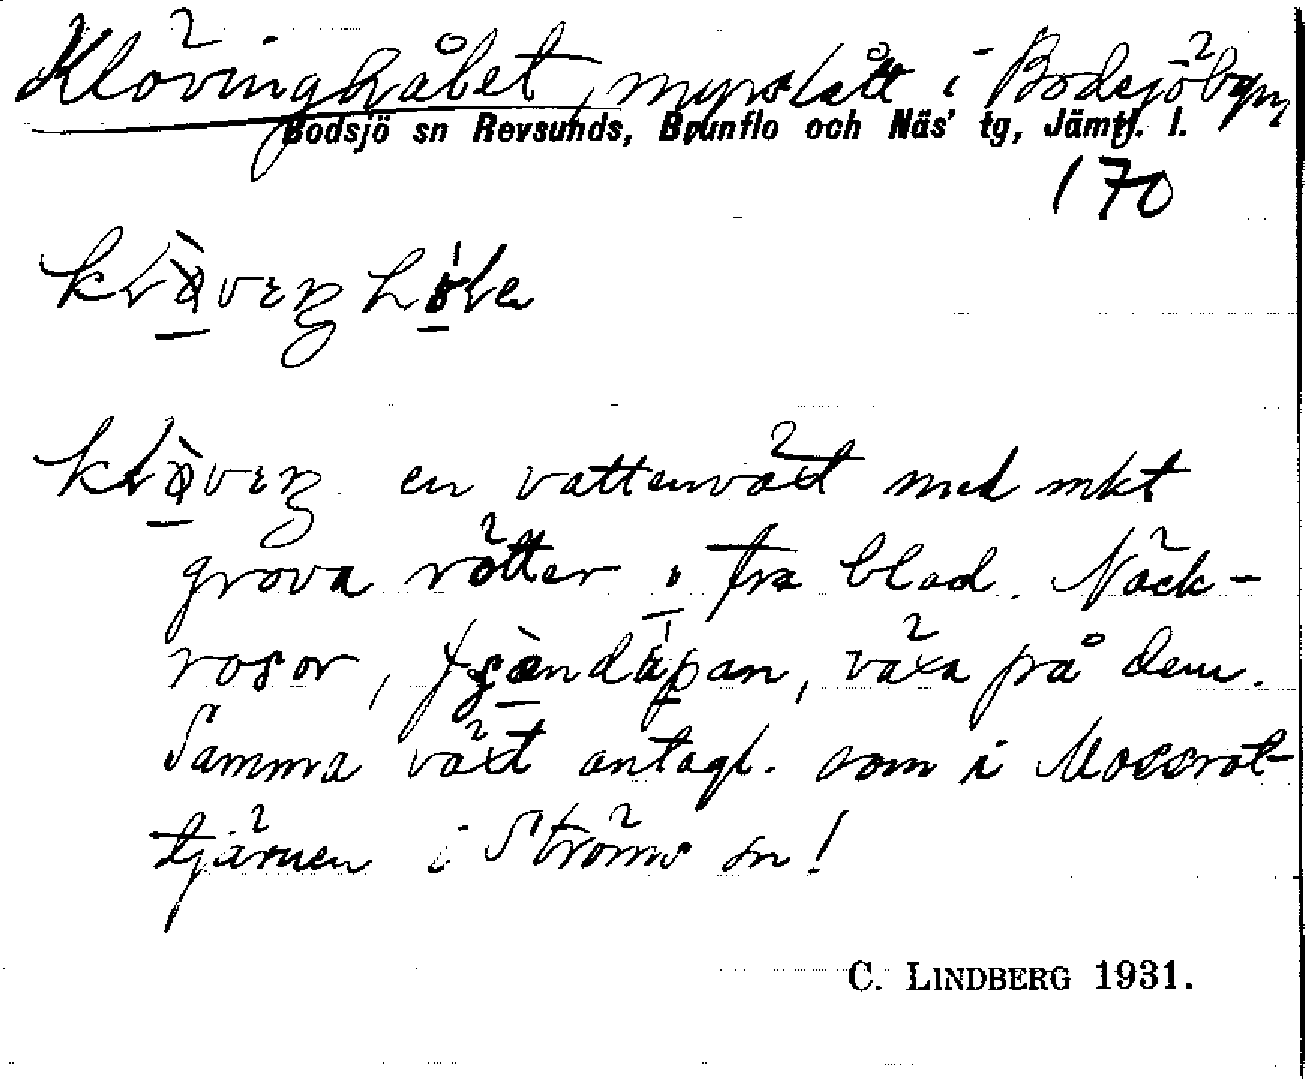 Klövinghålet, myrslått i Bodsjöbyn,
Bodsjö sn Revsunds, Brunflo och Näs' tg, Jämtl. l.
170
klövıŋhölе
klövıŋ en vattenväxt med mkt
grova rötter i fra blad. Näck-
rosor, växa på dem.
Samma växt antagl. som i Mossrot-
tjärnen i Ströms sn!
C. LINDBERG 1931.